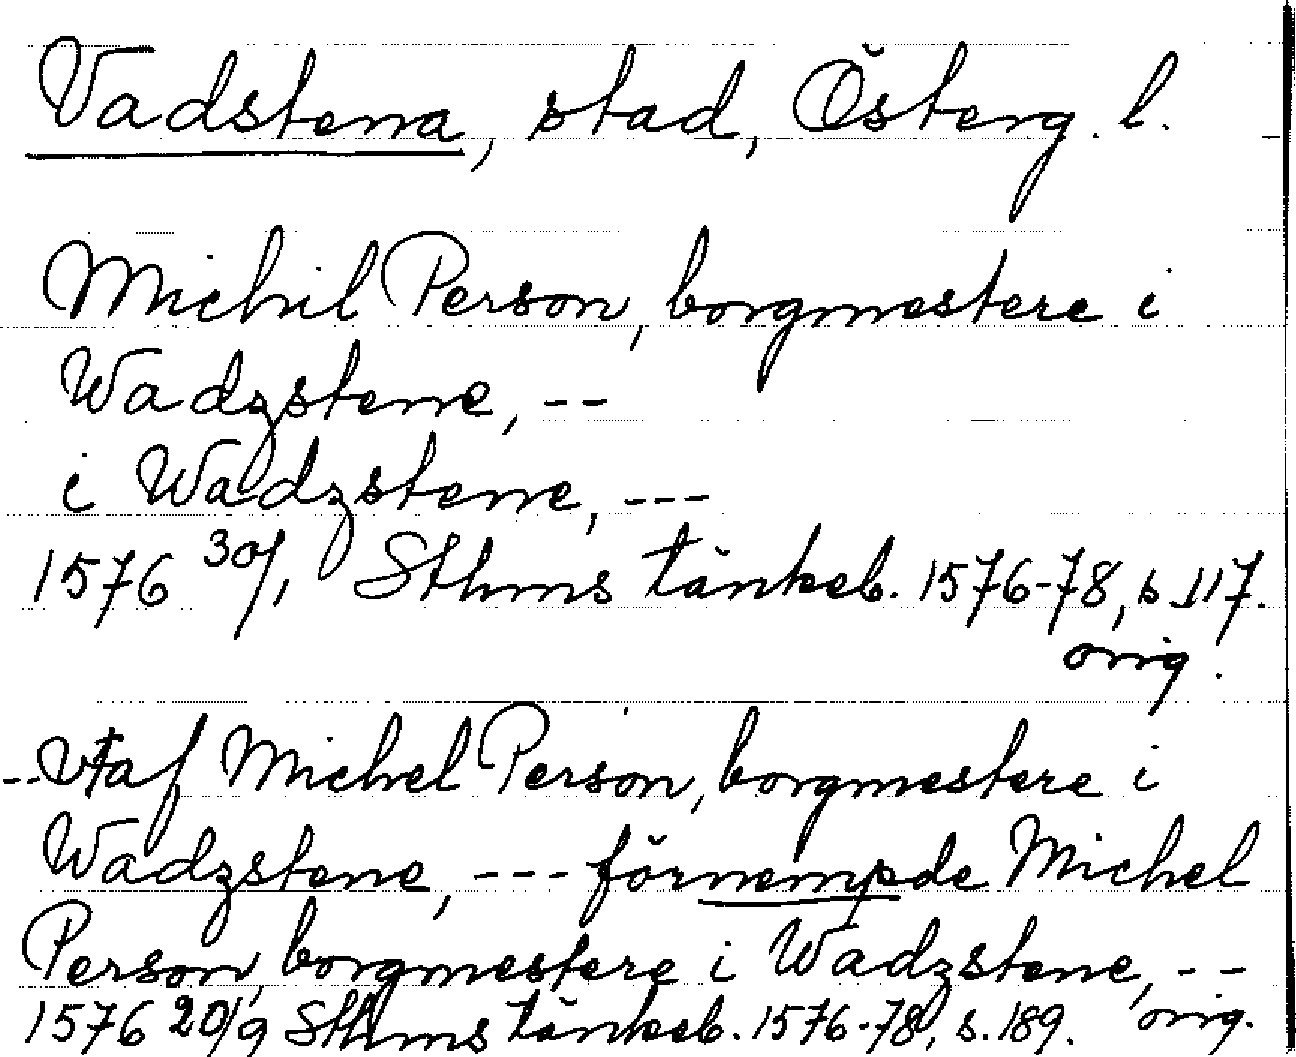 Vadstena, stad, Österg. l.
Michil Person, borgmestere i
Wadzstenne, --
i Wadzstenne, ---
1576 30/1 Sthms tänkeb. 1576-78, s. 117.
orig.
-- vtaf Michel Person, borgmestere i
Wadzstene, --- förnempde Michel
Person, borgmestere i Wadzstene, --
1576 20/9 Sthms tänkeb. 1576-78, s. 189. orig.